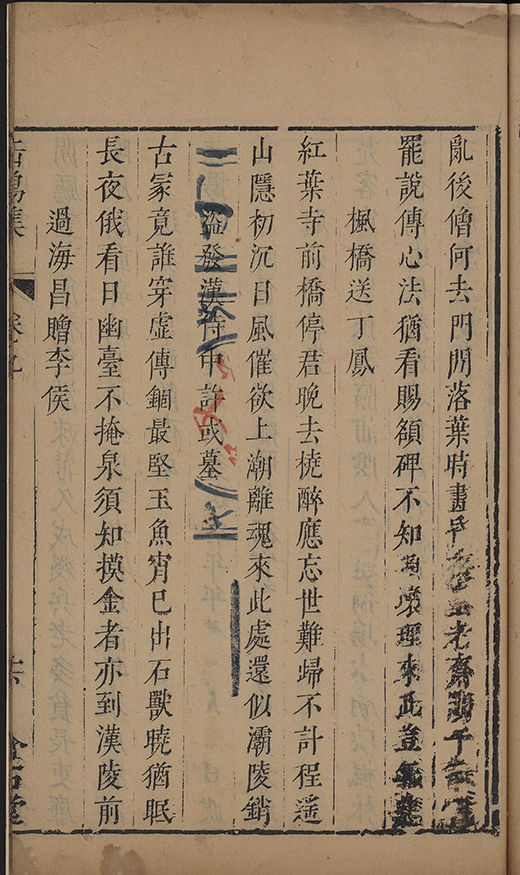 亂後僧何去門閒落葉時畫
老齋
罷說傳心法猶看賜額碑不知 壞理來此豈無
楓橋送丁鳳
紅葉寺前橋停君晚去橈醉應忘世難歸不計程遥
山隱初沉日風催欲上潮離魂來此處還似灞陵銷
盜發漢侍中許或墓
古冢竟誰穿虛傳錮最堅玉魚宵已出石獸曉猶眠
長夜俄看日幽臺不掩泉須知摸金者亦到漢陵前
過海昌贈李侯
卷九